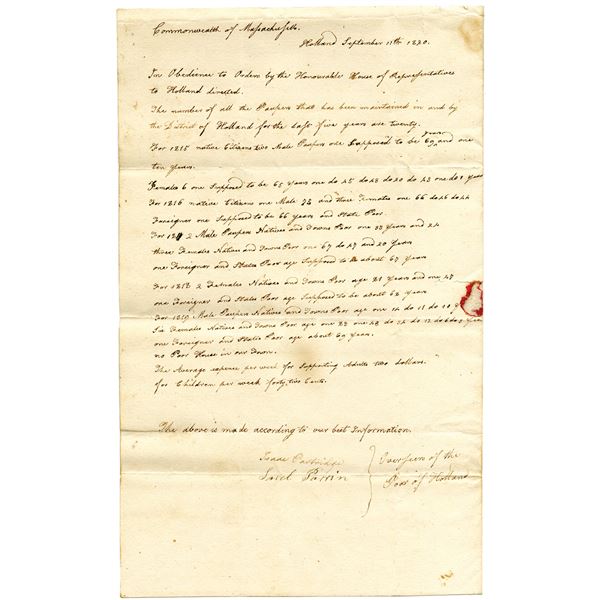 Commonwealth of Massachusetts.
Holland September 11th 1820.
In Obedience to Orders by the Honourable House of Representatives
to Holland directed.
The number of all the Paupers that has been maintained in and by
the District of Holland for the last five years are twenty.
For 1815 native Citizens two Male Paupers one Supposed to be 60 years and one
ten years.
Females 6 one Supposed to be 65 years one do 45 do 28 do 20 do 23 one do 1 year
For 1816 native Citizens one Male 72 and three Females one 66 do 26 do 22
Foreigner one Supposed to be 66 years and State Poor.
For 2 Male Paupers Natives and Towns Poor one and 24
three Females Natives and Towns Poor one 67 do 27 and 20 years
one Foreigner and State Poor age Supposed to be about 67 years
For 1818 2 Females Natives and Towns Poor age 21 years and one 47
one Foreigner and State Poor age Supposed to be about 68 years
For 1819 Male Paupers Natives and Towns Poor age one do 15 do 10
Six Females Natives and Towns Poor age one one do do 12 do
one Foreigner and State Poor age about years.
no Poor House in our Town.
The Average expense per week for Supporting Adults two dollars.
for Children per week forty two Cents.
The above is made according to our best Information.
Isaac Partridge
Lovel Perrin
Overseers of the
Poor of Holland